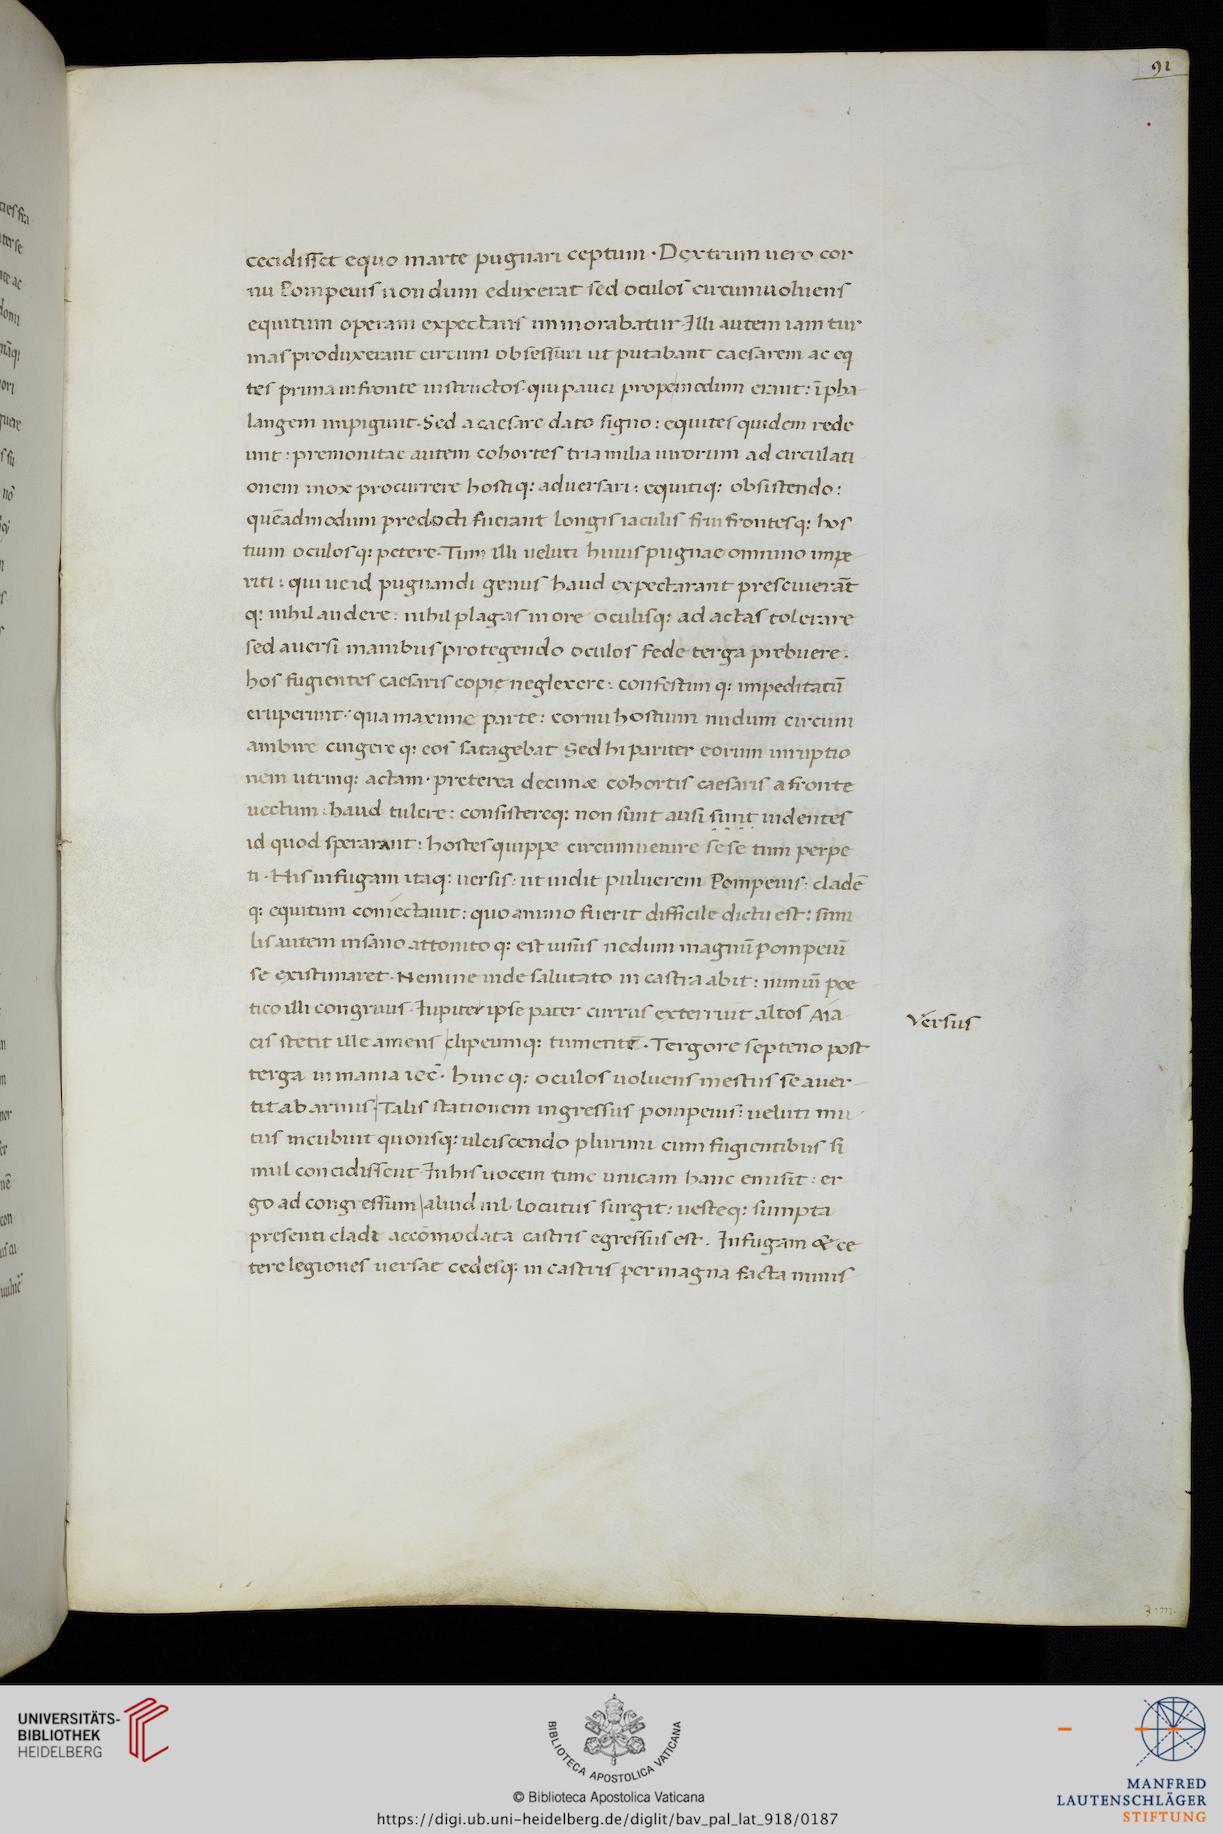 91
cecidisset equo marte pugnari ceptum · Dextrum uero cor
nu Pompeius nondum eduxerat sed oculos circumuoluens
equitum operam expectans inmorabatur · Illi autem iam tur
mas produxerant circum obsessuri ut putabant caesarem ac eq
tes prima in fronte instructos · qui pauci propemodum erant : ī pha
langem impigunt · Sed a caesare dato signo : equites quidem rede
unt : premonitae autem cohortes tria milia uirorum ad circulati
onem mox procurrere hostiq: aduersari : equitiq: obsistendo :
quēadmodum predocti fuerant longis iaculis friu frontesq: hos
tium oculosq: petere · Tum illi veluti huius pugnae omnino impe
riti : qui ue id pugnandi genus haud expectarant presciuerāt
q: nihil audere : nihil plagas in ore oculisq: ad actas tolerare
sed auersi manibus protegendo oculos fede terga prebuere ·
hos fugientes caesaris copie neglexere : confestim q: impeditatū
eruperunt · qua maxime parte : cornu hostium nudum circum
ambire cingere q: eos satagebat Sed hi pariter eorum inruptio
nem utrinq: actam · preterea decimæ cohortis caesaris a fronte
uectum : haud tulere : consistereq: non sunt ausi sunt uidentes
id quod sperarant : hostes quippe circumuenire sese tum perpe
ti · His in fugam itaq: uersis : ut uidit puluerem Pompeius · cladē
q: equitum coniectauit : quo animo fuerit difficile dictu est : simi
lis autem insano attonito q: est uisus nedum magnū pompeiū
se existimaret · Nemine inde salutato in castra abit : nimiū poe
tico illi congruus · Iupiter ipse pater currus exterruit altos Aia
cis stetit ille amens clipeumq: tumente · Tergore septeno post
Versus
terga inmania iec̄ · hinc q: oculos uoluens mestus se auer
tit ab armis · Talis stationem ingressus pompeius : ueluti mu
tus incubuit quousq: ulciscendo plurimi cum fugientibus si
mul concidissent · In his uocem tunc unicam hanc emisit : er
go ad congressum aliud nil locutus surgit : uesteq: sumpta
presenti clade accōmodata castris egressus est . In fugam & ce
tere legiones uersae cedesq: in castris permagna facta minis
UNIVERSITÄTS-
BIBLIOTHEK
HEIDELBERG
BIBLIOTECA APOSTOLICA VATICANA
© Biblioteca Apostolica Vaticana
https://digi.ub.uni-heidelberg.de/diglit/bav_pal_lat_918/0187
MANFRED
LAUTENSCHLÄGER
STIFTUNG